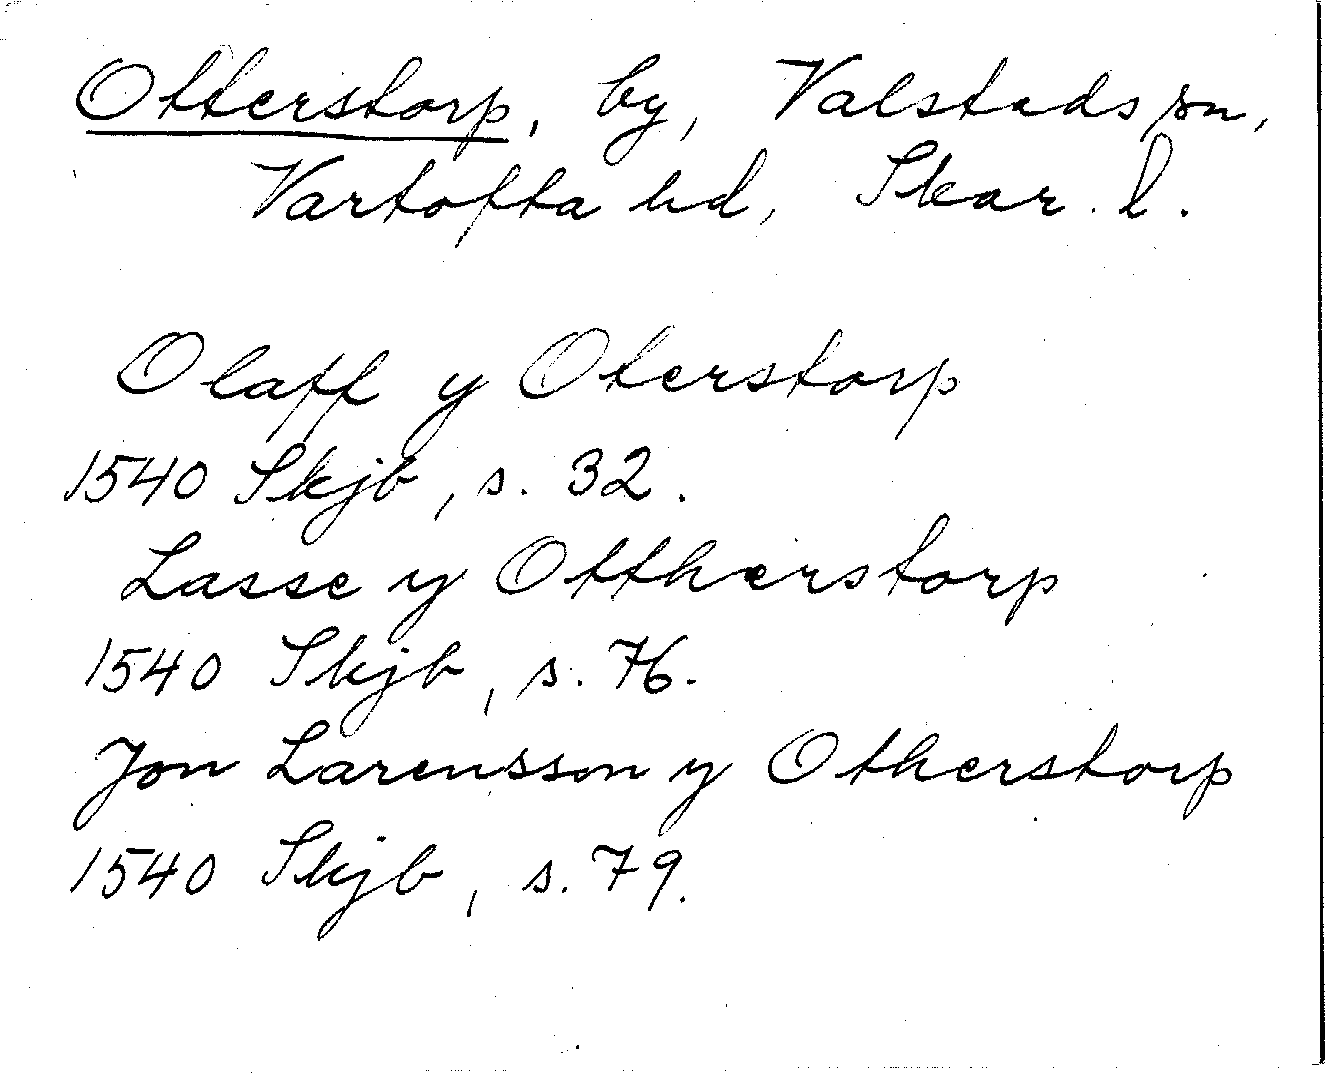 Otterstorp, by, Valstads sn,
Vartofta hd, Skar. l.
Olaff y Oterstorp
1540 Skjb, s. 32.
Lasse y Ottherstorp
1540 Skjb, s. 76.
Jon Larensson y Otherstorp
1540 Skjb, s. 79.